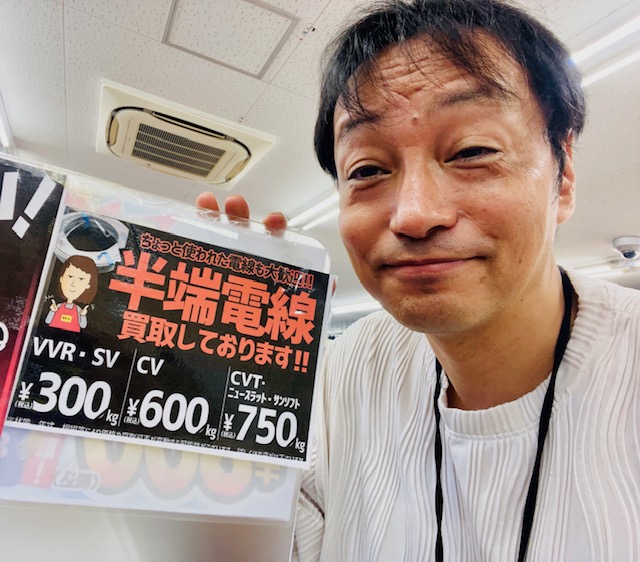 い!
ちょっと使われた電線も大歓迎!!
半端電線
買取しております!!
VVR・SV
¥300/kg
(税込)
CV
¥600/kg
(税込)
CVT・
ニュースラット・サンソフト
¥750/kg
(税込)